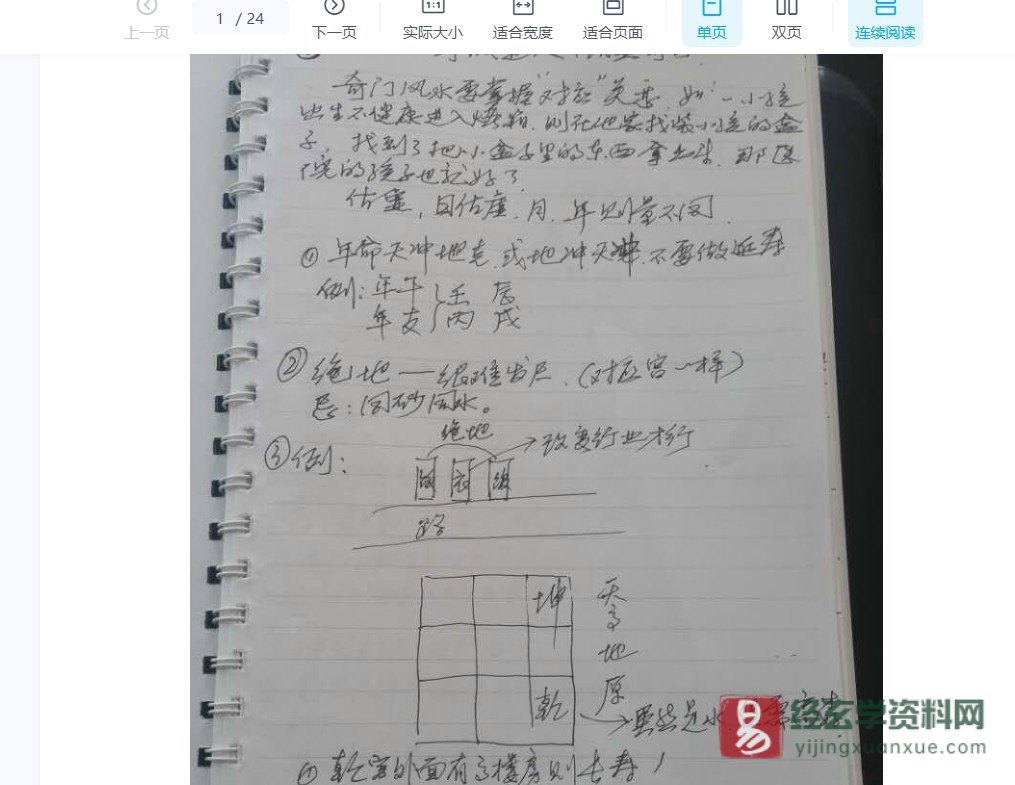 上一页
1 / 24
下一页
1:1
实际大小
适合宽度
适合页面
单页
双页
连续阅读
奇门风水要掌握"对应"关系.如:一小孩
出生不健康进入烤箱.则在他家找装小孩的盒
子,找到了把小盒子里的东西拿出来.那医
院的孩子也就好了
年命天冲地克.或地冲天冲.不要做延寿
例:年干 壬 辰
年支 丙 戌
② 绝地——很难发展.(对应宫一样)
忌:同砂同水。
③例:
绝地
改变行业才行
路
坤
乾
天高地原
果然是水
经玄学资料网
yijingxuanxue.com
乾宫外面有高楼房则长寿!